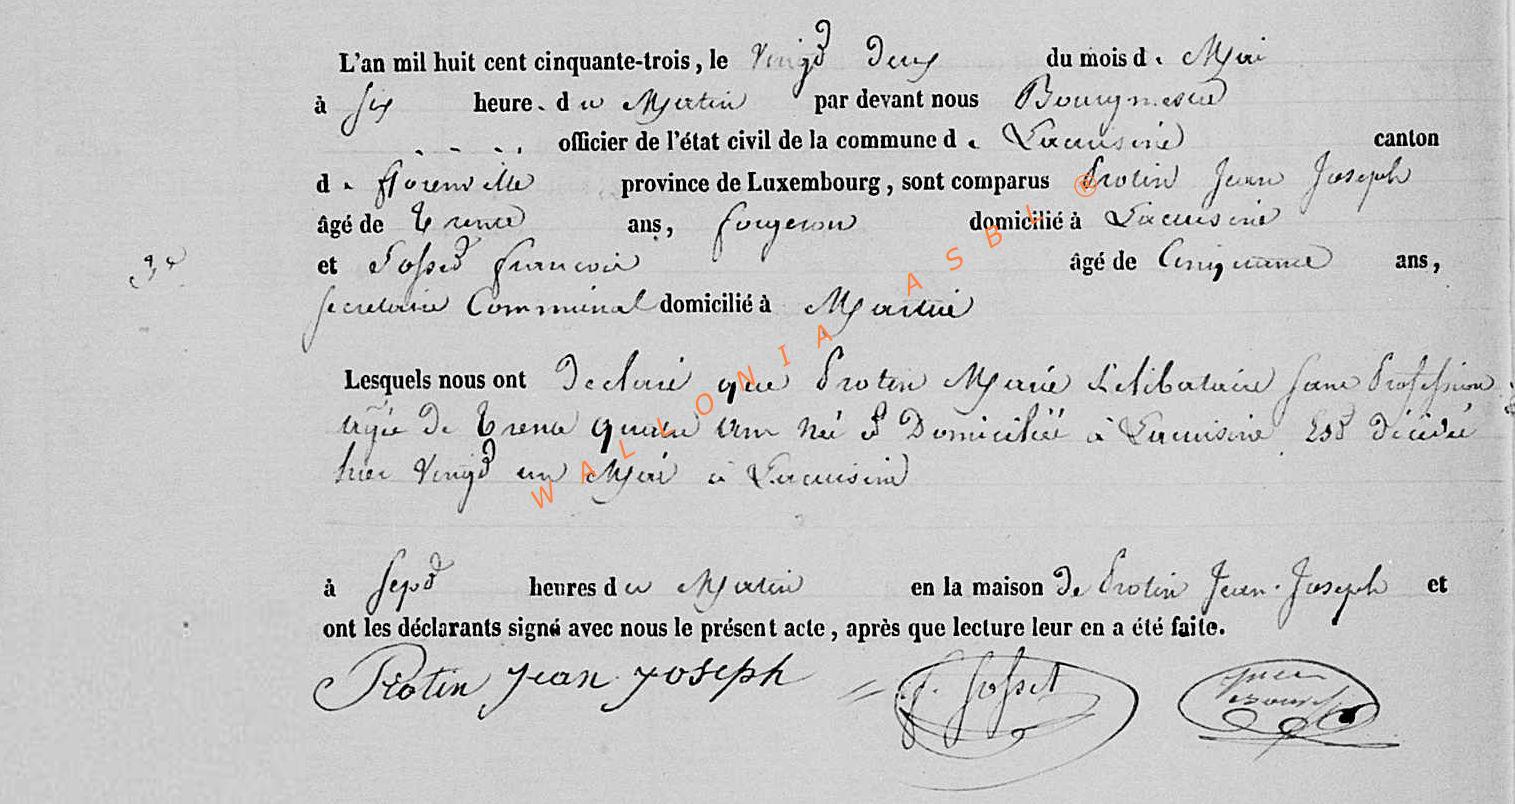 L'an mil huit cent cinquante-trois, le Vingt Deux du mois d e Mai
à Six heure. d u Matin par devant nous Bourgmestre
officier de l'état civil de la commune d e Lacuisine canton
d e florenville province de Luxembourg, sont comparus Protin Jean Joseph
âgé de Trente ans, forgeron domicilié à Lacuisine
et Josset francois âgé de Cinquante ans,
secretaire Communal domicilié à Martué
Lesquels nous ont Declaré que Protin Marie Celibataire sans Profession
agée de Trente quatre ans Né et Domiciliée à Lacuisine Est décédée
hier Vingt un Mai à Lacuisine
à Sept heures d u Matin en la maison De Protin Jean-Joseph et
ont les déclarants signé avec nous le présent acte, après que lecture leur en a été faite.
Protin Jean Joseph F. Josset
WALLONIA ASBL ©